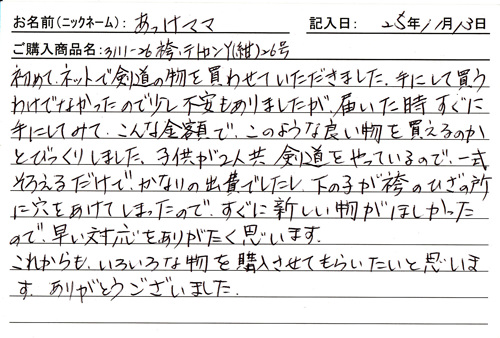 お名前(ニックネーム): あっけママ 記入日: 25年11月13日
ご購入商品名: 3111-26 袴・テトロン(紺)26号
初めて、ネットで剣道の物を買わせていただきました。手にして買う
わけでなかったので少し不安もありましたが、届いた時すぐに
手にしてみて、こんな金額で、このような良い物を買えるのか
とびっくりしました、子供が2人共 剣道をやっているので、一式
そろえるだけで、かなりの出費でしたし、下の子が袴のひざの所
に穴をあけてしまったので、すぐに新しい物がほしかった
ので、早い対応をありがたく思います。
これからも、いろいろな物を購入させてもらいたいと思いま
す。ありがとうございました。